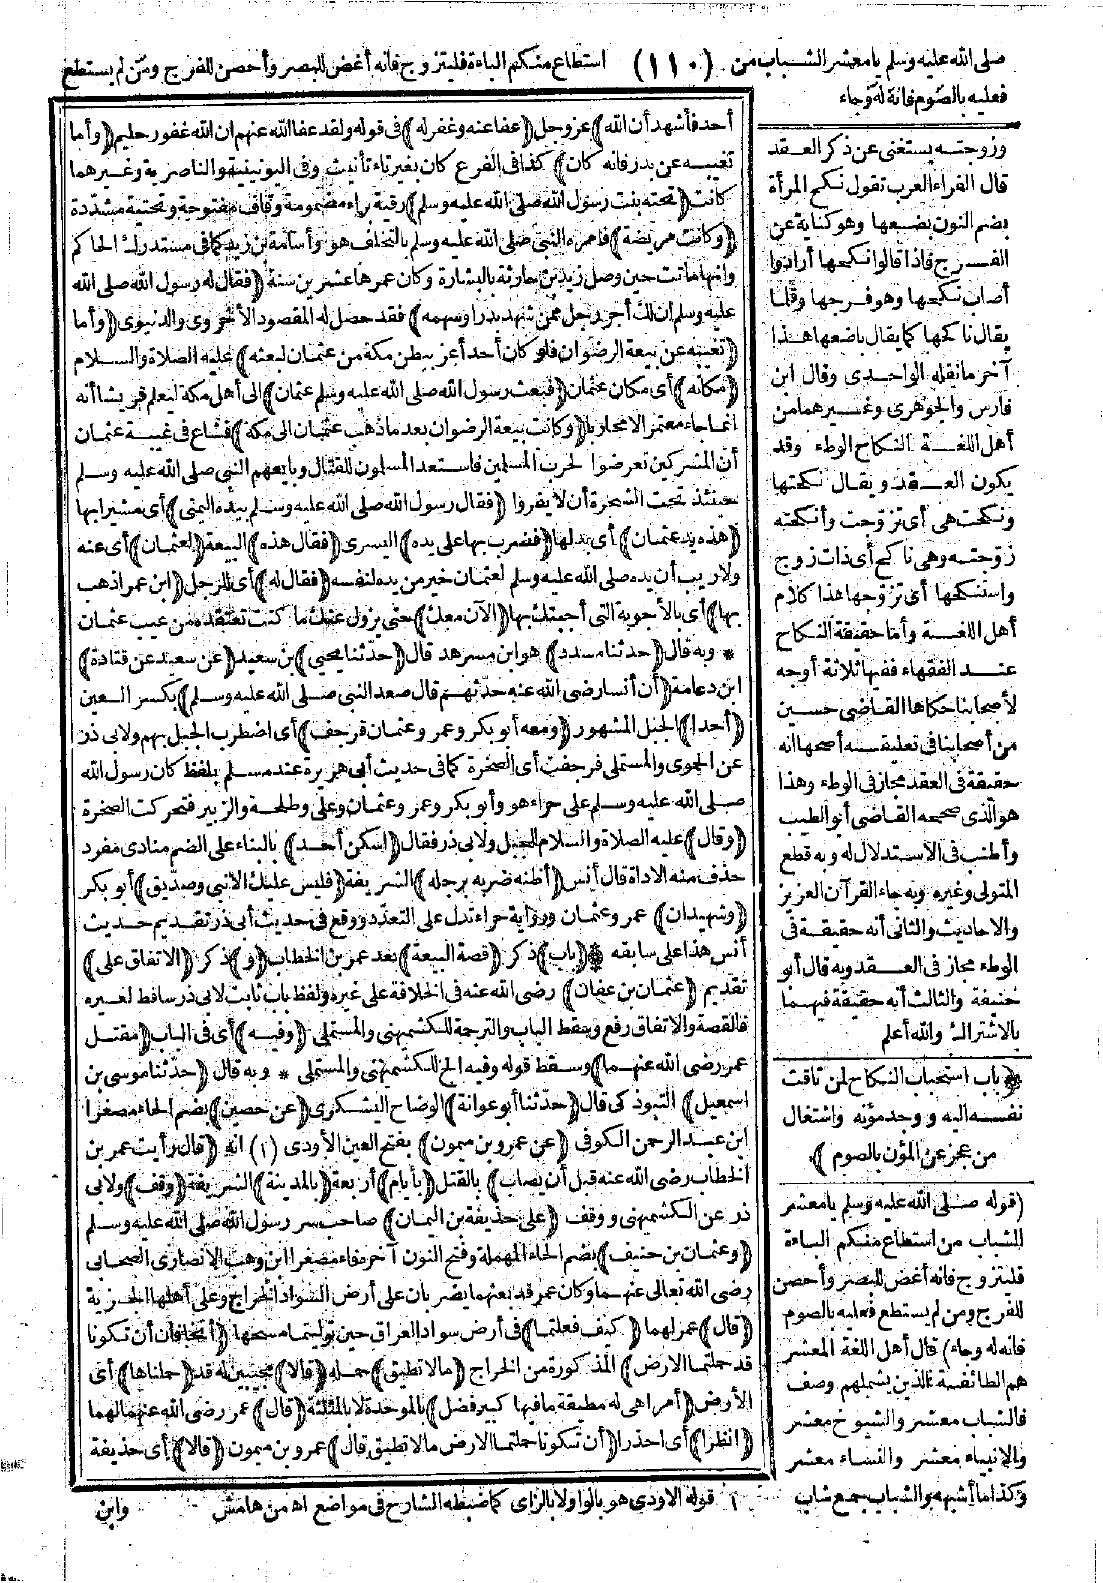 صلى الله عليه وسلم يا معشر الشباب من (١١٠) استطاع منكم الباءة فليتزوج فانه أغض للبصر وأحصن للفرج ومن لم يستطع
فعليه بالصوم فانه له وجاء
وزوجته يستغنى عن ذكر العقد
قال الفراء العرب تقول نكح المرأة
بضم النون بضعها وهو كناية عن
الفرج فاذا قالوا نكحها أرادوا
أصاب نكحها وهو فرجها وقلما
يقال ناكحها كما يقال باضعها هذا
آخر ما نقله الواحدى وقال ابن
فارس والجوهرى وغيرهما من
أهل اللغة النكاح الوطء وقد
يكون العقد ويقال نكحتها
ونكحت هى أى تزوجت وأنكحته
زوجته وهى ناكح أى ذات زوج
واستنكحها أى تزوجها هذا كلام
أهل اللغة وأما حقيقة النكاح
عند الفقهاء ففيها ثلاثة أوجه
لأصحابنا حكاها القاضى حسين
من أصحابنا فى تعليقه أصحها أنه
حقيقة فى العقد مجاز فى الوطء وهذا
هو الذى صححه القاضى أبو الطيب
وأطنب فى الاستدلال له وبه قطع
المتولى وغيره وبه جاء القرآن العزيز
والاحاديث والثانى أنه حقيقة فى
الوطء مجاز فى العقد وبه قال أبو
حنيفة والثالث أنه حقيقة فيهما
بالاشتراك والله أعلم
﴿باب استحباب النكاح لمن تاقت
نفسه اليه ووجد مؤنه واشتغال
من عجز عن المؤن بالصوم﴾
(قوله صلى الله عليه وسلم يا معشر
الشباب من استطاع منكم الباءة
فليتزوج فانه أغض للبصر وأحصن
للفرج ومن لم يستطع فعليه بالصوم
فانه له وجاء) قال أهل اللغة المعشر
هم الطائفة الذين يشملهم وصف
فالشباب معشر والشيوخ معشر
والانبياء معشر والنساء معشر
وكذا ما أشبهه والشباب جمع شاب
أحد فأشهد أن الله﴾ عز وجل ﴿عفا عنه وغفر له﴾ فى قوله ولقد عفا الله عنهم ان الله غفور حليم ﴿وأما
تغيبه عن بدر فانه كان﴾ كذا فى الفرع كان بغير تاء تأنيث وفى اليونينية والناصرية وغيرهما
كانت ﴿تحته بنت رسول الله صلى الله عليه وسلم﴾ رقية براء مضمومة وقاف مفتوحة وتحتية مشددة
﴿وكانت مريضة﴾ فامره النبى صلى الله عليه وسلم بالتخلف هو وأسامة بن زيد كما فى مستدرك الحاكم
وانها ماتت حين وصل زيد بن حارثة بالبشارة وكان عمرها عشرين سنة ﴿فقال له رسول الله صلى الله
عليه وسلم ان لك أجر رجل ممن شهد بدرا وسهمه﴾ فقد حصل له المقصود الاخروى والدنيوى ﴿وأما
﴿تغيبه عن بيعة الرضوان فلو كان أحد أعز ببطن مكة من عثمان لبعثه﴾ عليه الصلاة والسلام
﴿مكانه﴾ أى مكان عثمان ﴿فبعث رسول الله صلى الله عليه وسلم عثمان﴾ الى أهل مكة ليعلم قريشا أنه
انما جاء معتمرا لا محاربا ﴿وكانت بيعة الرضوان بعد ما ذهب عثمان الى مكة﴾ فشاع فى غيبة عثمان
أن المشركين تعرضوا لحرب المسلمين فاستعد المسلمون للقتال وبايعهم النبى صلى الله عليه وسلم
حينئذ تحت الشجرة أن لا يفروا ﴿فقال رسول الله صلى الله عليه وسلم بيده اليمنى﴾ أى مشيرا بها
﴿هذه يد عثمان﴾ أى بدلها ﴿فضرب بها على يده﴾ اليسرى ﴿فقال هذه﴾ البيعة ﴿لعثمان﴾ أى عنه
ولا ريب أن يده صلى الله عليه وسلم لعثمان خير من يده لنفسه ﴿فقال له﴾ أى للرجل ﴿ابن عمر اذهب
بها﴾ أى بالأجوبة التى أجبتك بها ﴿الآن معك﴾ حتى يزول عنك ما كنت تعتقده من عيب عثمان
* وبه قال ﴿حدثنا مسدد﴾ هو ابن مسرهد قال ﴿حدثنا يحيى﴾ بن سعيد ﴿عن سعيد عن قتادة﴾
ابن دعامة ﴿أن أنسا رضى الله عنه حدثهم قال صعد النبى صلى الله عليه وسلم﴾ بكسر العين
﴿أحدا﴾ الجبل المشهور ﴿ومعه أبو بكر وعمر وعثمان فرجف﴾ أى اضطرب الجبل بهم ولابى ذر
عن الحموى والمستملى فرجفت أى الصخرة كما فى حديث أبى هريرة عند مسلم بلفظ كان رسول الله
صلى الله عليه وسلم على حراء هو وأبو بكر وعمر وعثمان وعلى وطلحة والزبير فتحركت الصخرة
﴿وقال﴾ عليه الصلاة والسلام للجبل ولابى ذر فقال ﴿اسكن أحد﴾ بالبناء على الضم منادى مفرد
حذف منه الاداة قال أنس ﴿أظنه ضربه برجله﴾ الشريفة ﴿فليس عليك الا نبى وصديق﴾ أبو بكر
﴿وشهيدان﴾ عمر وعثمان ورواية حراء تدل على التعدد ووقع فى حديث أبى ذر تقديم حديث
أنس هذا على سابقه * ﴿باب﴾ ذكر ﴿قصة البيعة﴾ بعد عمر بن الخطاب ﴿و﴾ ذكر ﴿الاتفاق على﴾
تقديم ﴿عثمان بن عفان﴾ رضى الله عنه فى الخلافة على غيره ولفظ باب ثابت لابى ذر ساقط لغيره
فالقصة والاتفاق رفع وسقط الباب والترجمة للكشميهنى والمستملى ﴿وفيه﴾ أى فى الباب ﴿مقتل
عمر رضى الله عنهما﴾ وسقط قوله وفيه الخ للكشميهنى والمستملى * وبه قال ﴿حدثنا موسى بن
اسمعيل﴾ التبوذكى قال ﴿حدثنا أبو عوانة﴾ الوضاح اليشكرى ﴿عن حصين﴾ بضم الحاء مصغرا
ابن عبد الرحمن الكوفى ﴿عن عمرو بن ميمون﴾ بفتح العين الأودى (١) انه ﴿قال رأيت عمر بن
الخطاب رضى الله عنه قبل أن يصاب﴾ بالقتل ﴿بأيام﴾ أربعة ﴿بالمدينة﴾ الشريفة ﴿وقف﴾ ولابى
ذر عن الكشميهنى ووقف ﴿على حذيفة بن اليمان﴾ صاحب سر رسول الله صلى الله عليه وسلم
﴿وعثمان بن حنيف﴾ بضم الحاء المهملة وفتح النون آخره فاء مصغرا ابن وهب الانصارى الصحابى
رضى الله تعالى عنهما وكان عمر قد بعثهما يضربان على أرض السواد الخراج وعلى أهلها الجزية
﴿قال﴾ عمر لهما ﴿كيف فعلتما﴾ فى أرض سواد العراق حين توليتما مسحها ﴿أتخافان أن تكونا
قد حملتما الارض﴾ المذكورة من الخراج ﴿ما لا تطيق﴾ حمله ﴿قالا﴾ مجيبين له قد ﴿حملناها﴾ أى
الأرض ﴿أمرا هى له مطيقة ما فيها كبير فضل﴾ بالموحدة لا بالمثلثة ﴿قال﴾ عمر رضى الله عنه لهما
﴿انظرا﴾ أى احذرا ﴿أن تكونا حملتما الارض ما لا تطيق قال﴾ عمرو بن ميمون ﴿قالا﴾ أى حذيفة
١ قوله الاودى هو بالواو لا بالزاى كما ضبطه الشارح فى مواضع اه من هامش
وابن